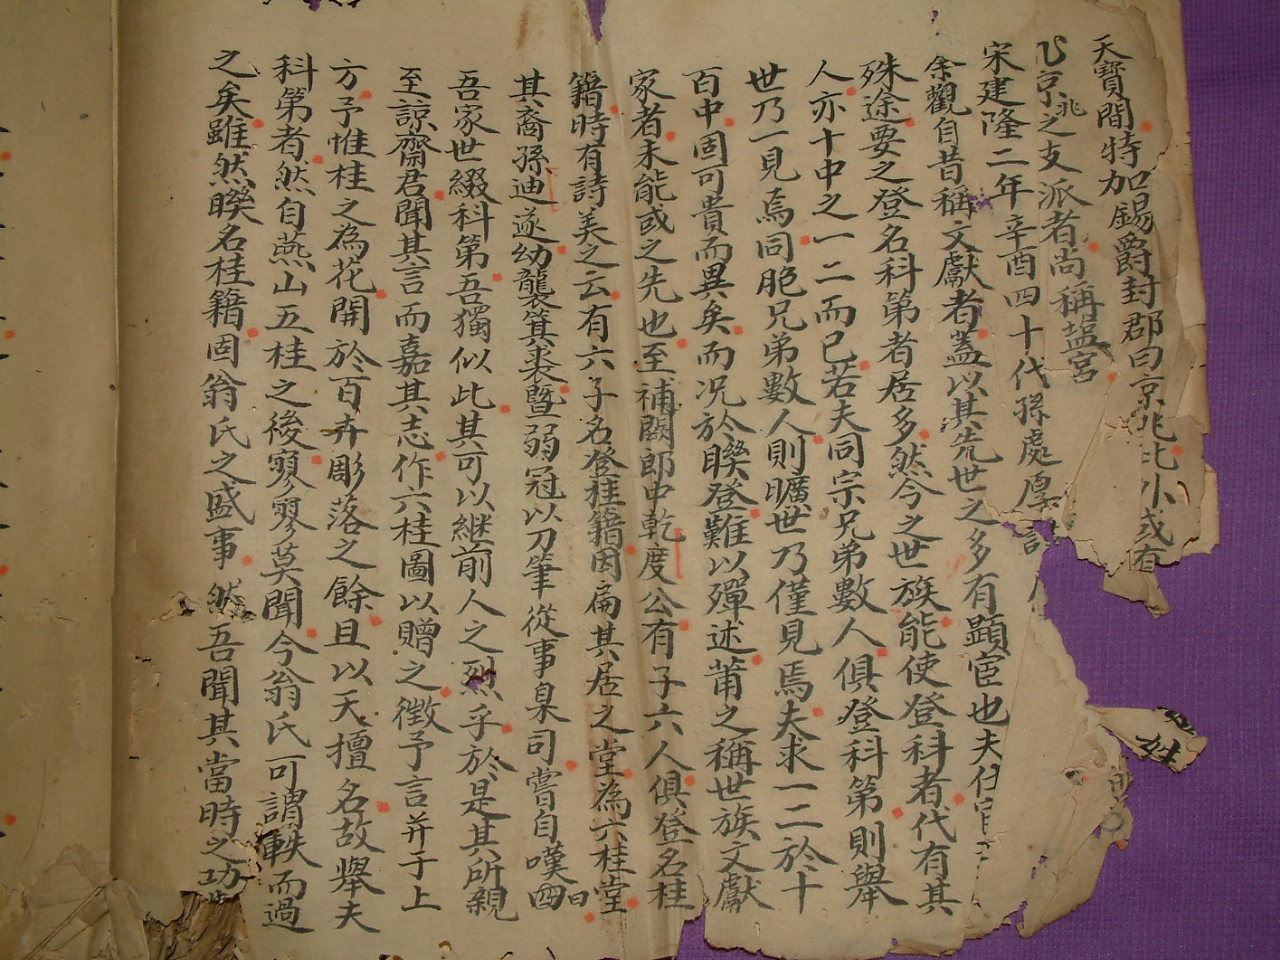 天寶間特加錫爵封郡曰京兆此小或有
京兆之支派者尚稱盐宮
宋建隆二年辛酉四十代孫處厚
余觀自昔稱文獻者蓋以其先世之多有顕宦也夫仕宦
殊途要之登名科第者居多然今之世族能使登科者代有其
人亦十中之一二而已若夫同宗兄弟數人俱登科第則舉
世乃一見焉同胞兄弟數人則曠世乃僅見焉夫求一二於十
百中固可貴而異矣而况於聨登難以殫述莆之稱世族文獻
家者未能或之先也至補闕郎中乾度公有子六人俱登名桂
籍時有詩美之云有六子名登桂籍因扁其居之堂為六桂堂
其裔孫迪遂幼襲箕裘暨弱冠以刀筆從事臬司嘗自嘆曰
吾家世綴科第吾獨似此其可以継前人之烈乎於是其所親
至諒齋君聞其言而嘉其志作六桂圖以贈之徵予言并于上
方予惟桂之為花開於百卉彫落之餘且以天擅名故舉夫
科第者然自燕山五桂之後寥寥莫聞今翁氏可謂軼而過
之矣雖然聨名桂籍固翁氏之盛事然吾聞其當時之功